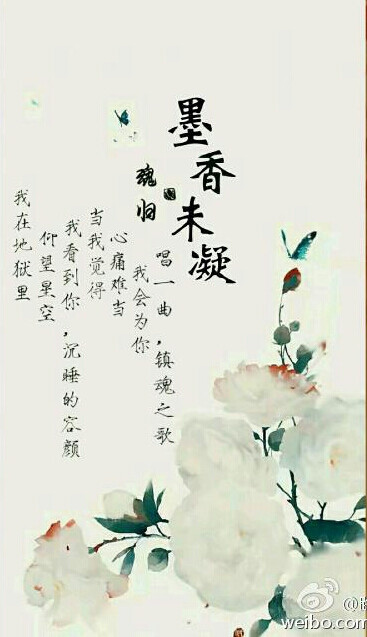 墨香未凝
魂归
我在地狱里
仰望星空
我看到你,沉睡的容颜
当我觉得
心痛难当
我会为你
唱一曲,镇魂之歌
weibo.com